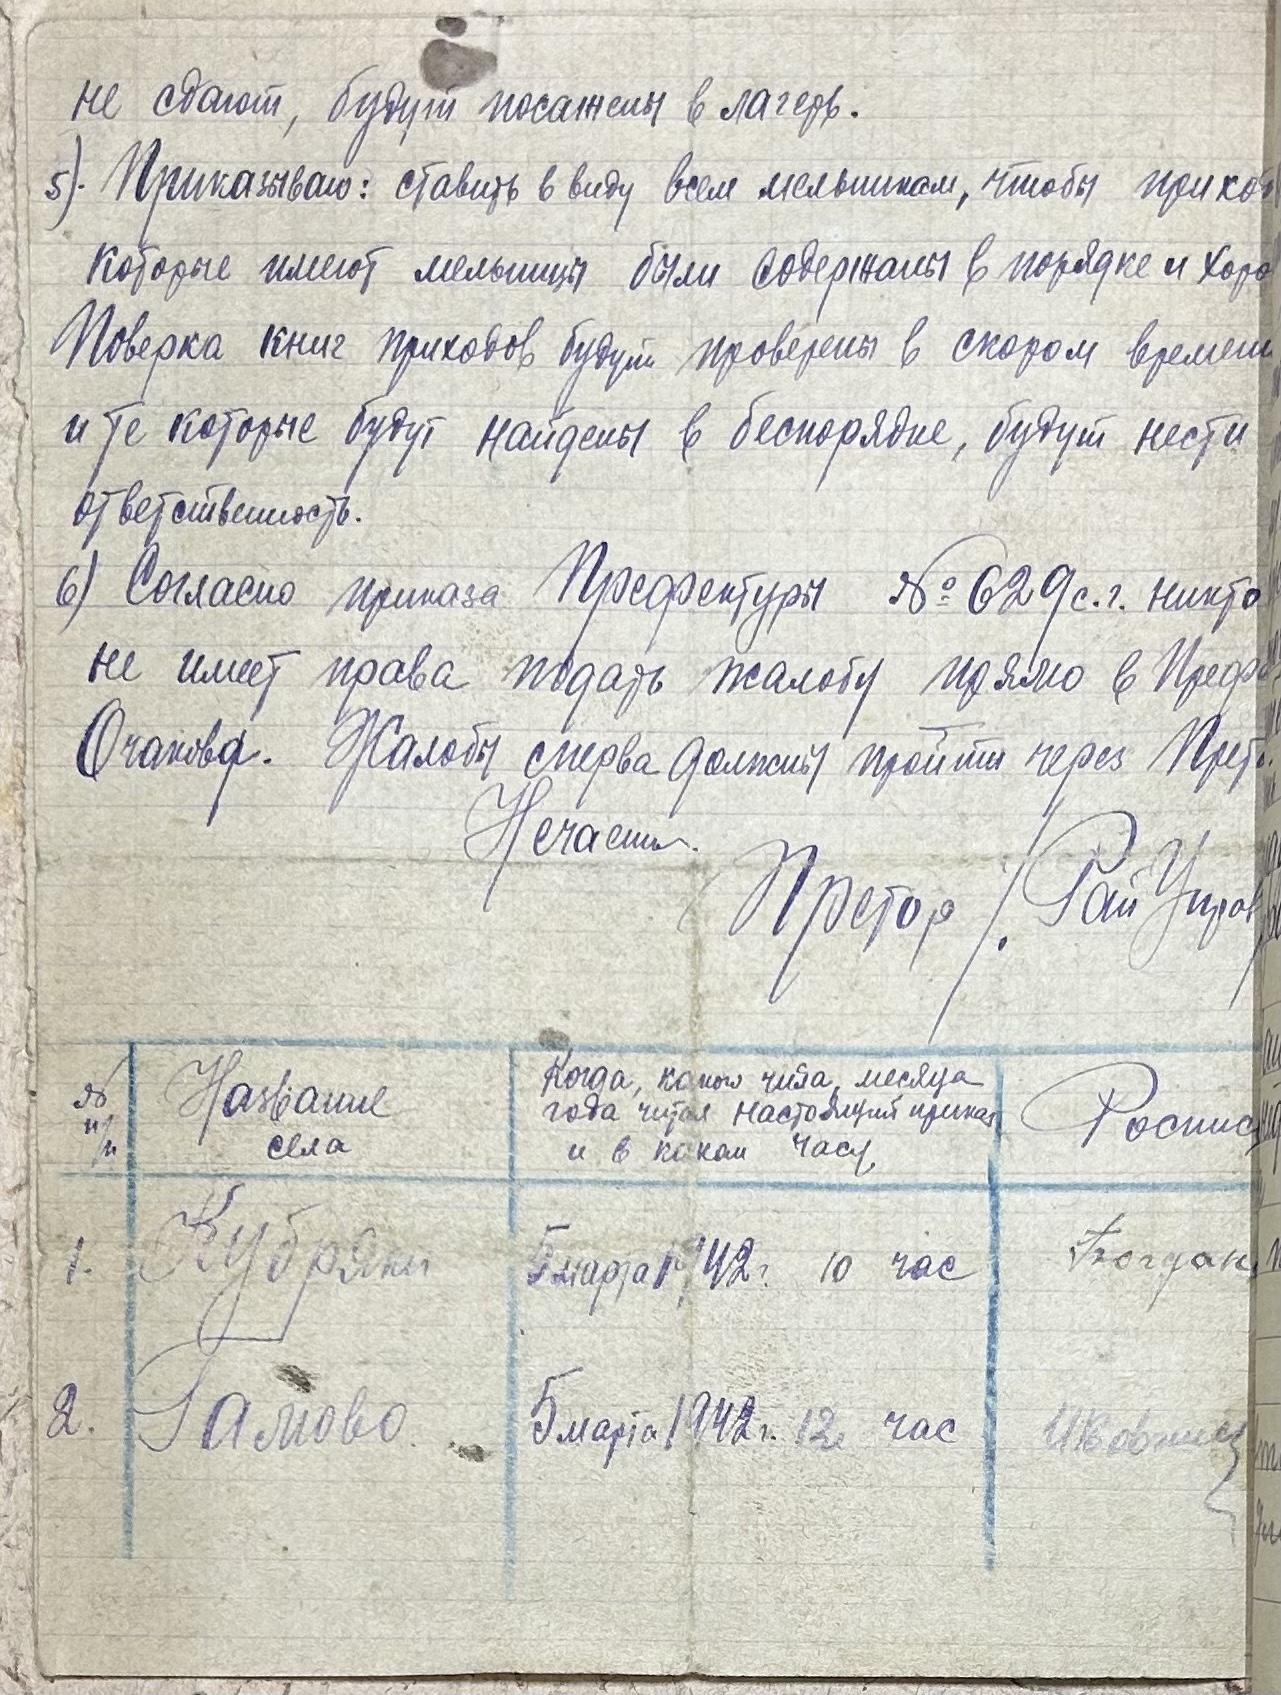 не сдают, будут посажены в лагерь.
5). Приказываю: ставить в виду всем мельникам, чтобы прихо
которые имеют мельницы были содержаны в порядке и хоро
Поверка книг приходов будут проверены в скором времени
и те которые будут найдены в беспорядке, будут нести
ответственность.
6) Согласно приказа Префектуры № 629 с.г. никто
не имеет права подать жалобу прямо в Префе
Очакова. Жалобы сперва должны пройти через Прет.
Претор /. Рай Управ
№ п/п
Название села
Когда, какого числа, месяца
года читал настоящий приказ
и в каком часу
Роспис
1. Кубряки 5 марта 1942 г. 10 час Богдан
2. 5 марта 1942 г. 12 час